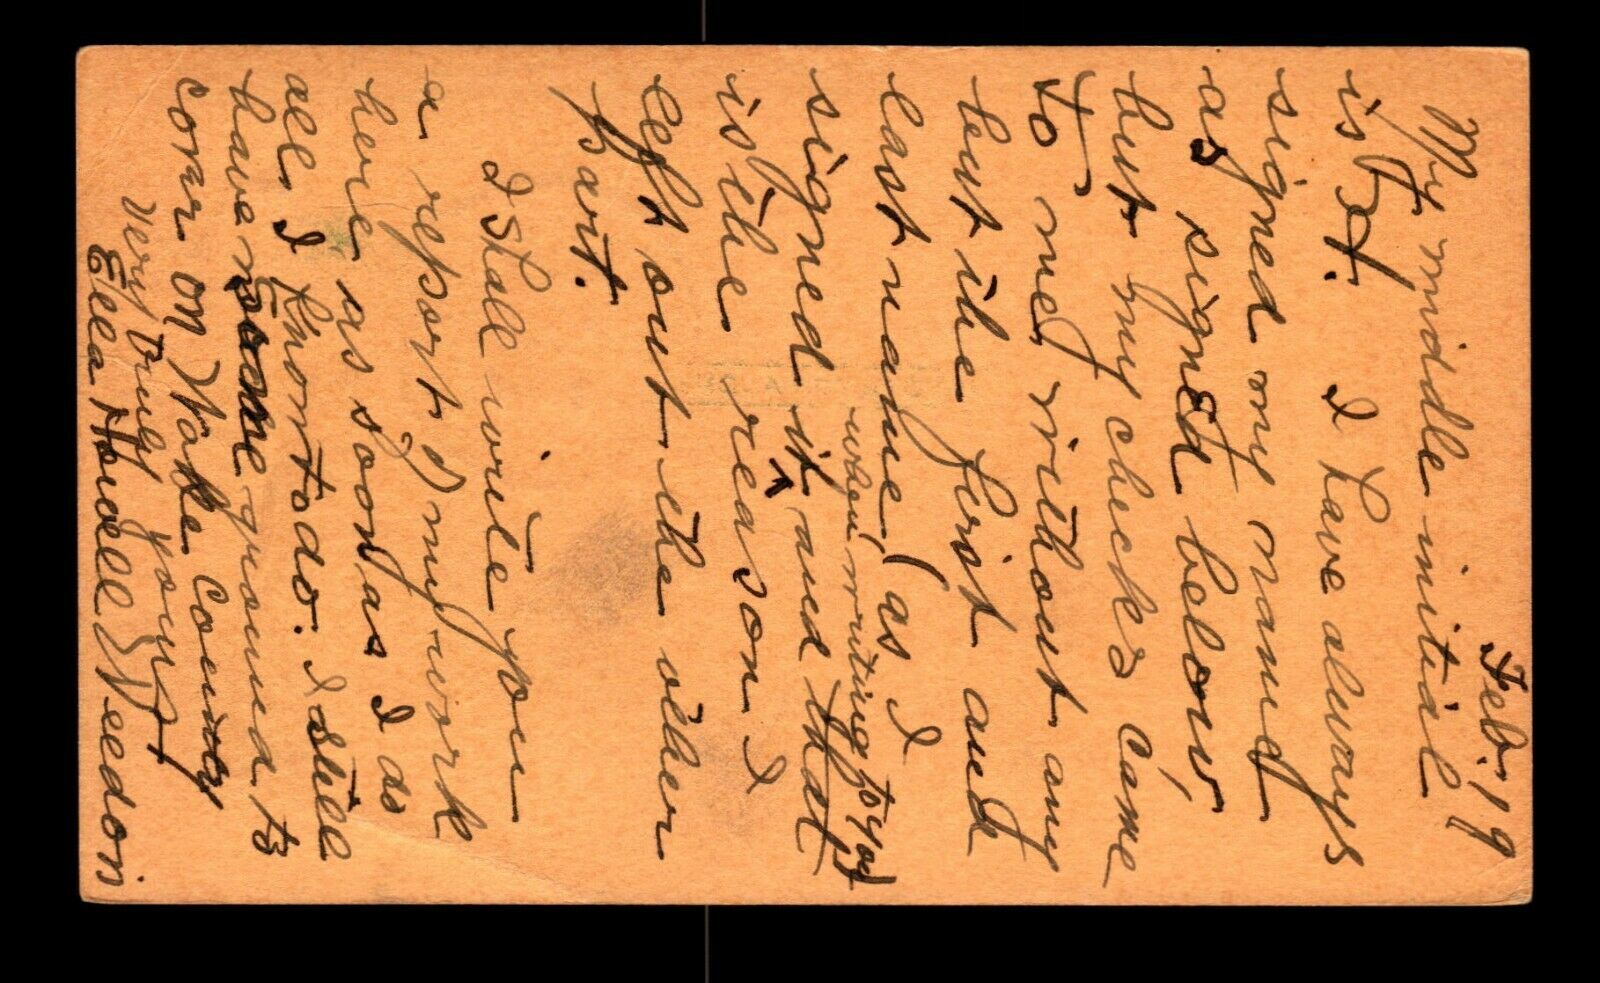 Feb. 19
My middle initial
is H. I have always
signed my name
as signed below,
but my checks came
to me without any
but the first and
last name, (as I
when writing to you
signed it and that
is the reason I
left out the other
part.
I shall write you
a report of my work
here as soon as I do
all I know to do. I still
have some grounds to
cover on Wake County
Very truly yours
Ella Howell Weedon